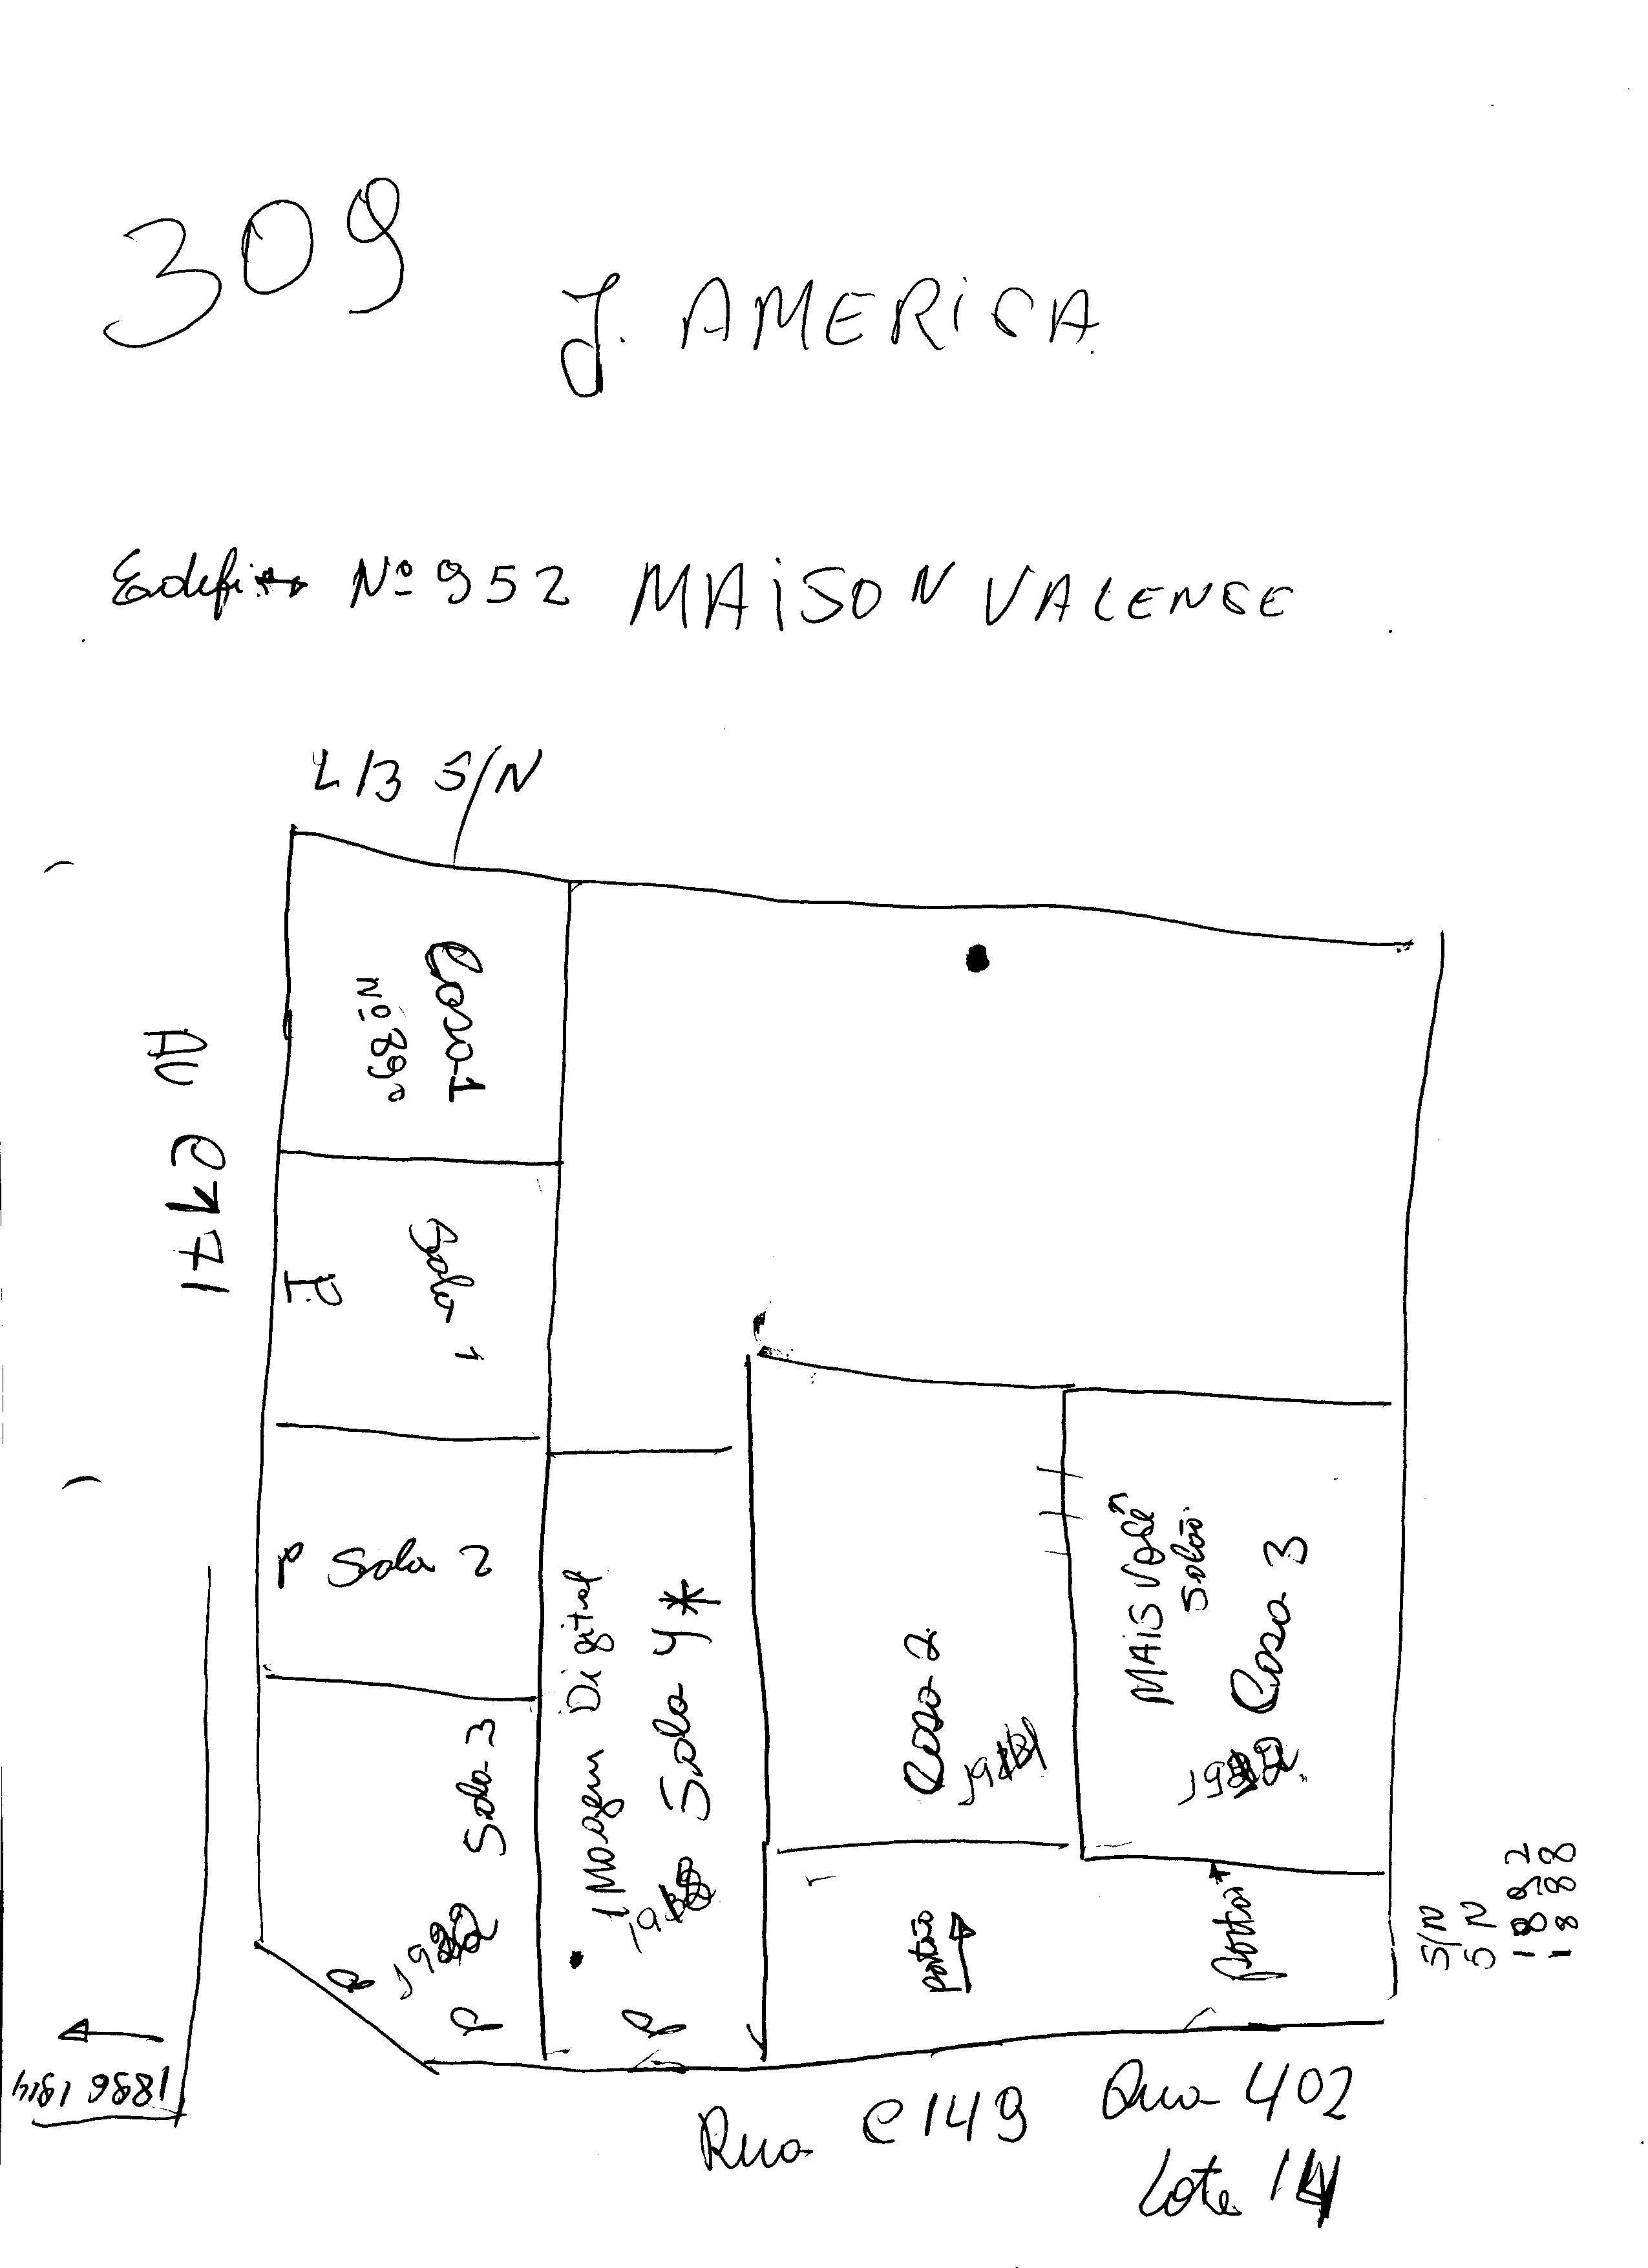 309
J. AMERICA
Edifi Nº 952 MAISON VALENSE
L13 S/N
Casa 1
Nº 890
AV C171
Sala 1
P
P Sala 2
Sala 3
P
P
Imagem Digital
Sala 4 *
P
Casa 2
MAIS VOCÊ
Salão
Casa 3
portão
portão
S/N
S N
1892
1888
1886 1914
Rua C149
Qua 402
Lote 14